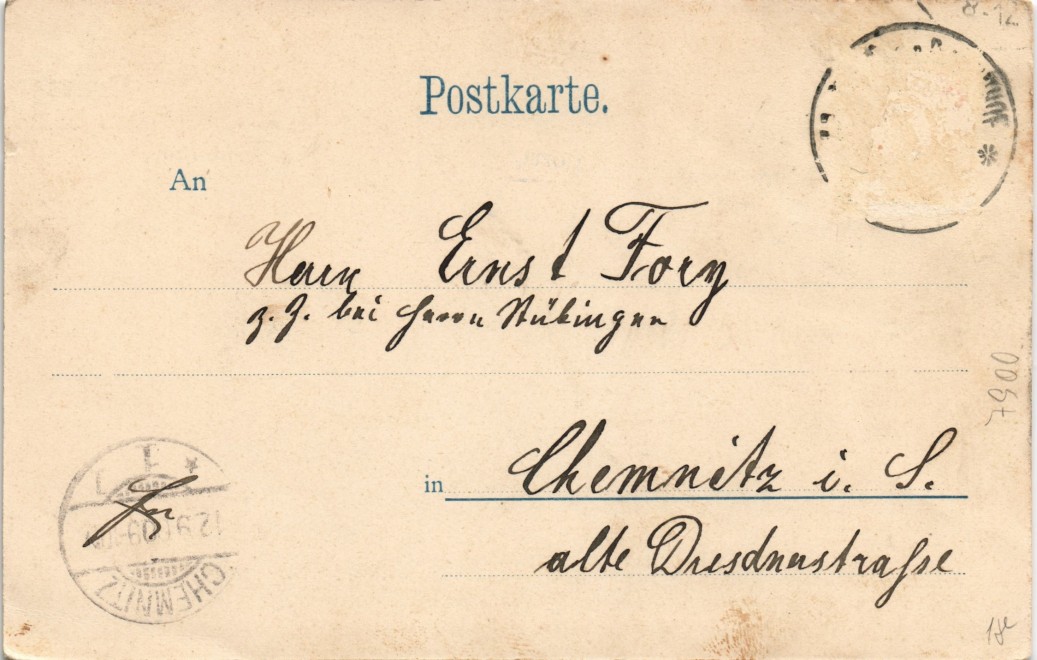 8-12
Postkarte.
An
Herrn Ernst Fory
z. Z. bei Herrn Stübinger
in Chemnitz i. S.
alte Dresdnerstraße
7900
CHEMNITZ
1
12.9.